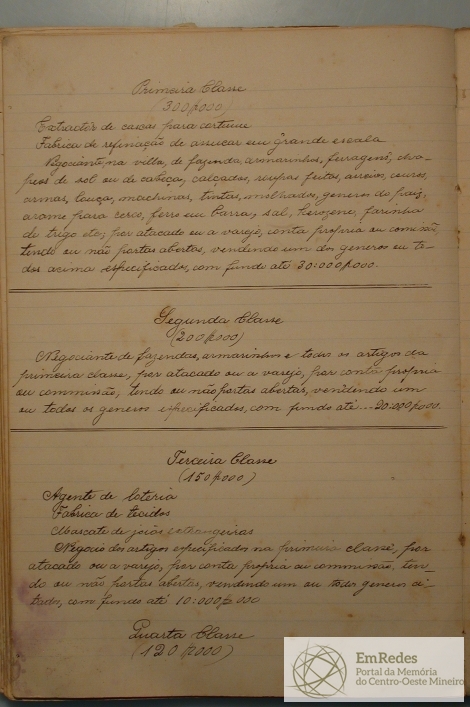 Primeira Classe
(300$000)
Extractor de cascas para cortume
Fabrica de refinação de assucar em grande escala
Negociante na villa, de fazenda, armarinhos, ferragens, cha-
peos de sol ou de cabeça, calçados, roupas feitas, arreios, couros,
armas, louça, machinas, tintas, molhados, generos do paiz,
arame para cerca, ferro em barra, sal, kerozene, farinha
de trigo etc; por atacado ou a varejo, conta propria ou comissão,
tendo ou não portas abertas, vendendo um dos generos ou to-
dos acima especificados, com fundo até 30:000$000.
Segunda Classe
(200$000)
Negociante de fazendas, armarinhos e todos os artigos da
primeira classe, por atacado ou a varejo, por conta própria
ou commissão, tendo ou não portas abertas, vendendo um
ou todos os generos especificados, com fundo até...20:000$000.
Terceira Classe
(150$000)
Agente de loteria
Fabrica de tecidos
Mascate de joias estrangeiras
Negocio dos artigos especificados na primeira classe, por
atacado ou a varejo, por conta propria ou commissão, ten-
do ou não portas abertas, vendendo um ou todos generos ci-
tados, com fundo até 10:000$000
Quarta Classe
(120$000)
EmRedes
Portal da Memória
do Centro-Oeste Mineiro